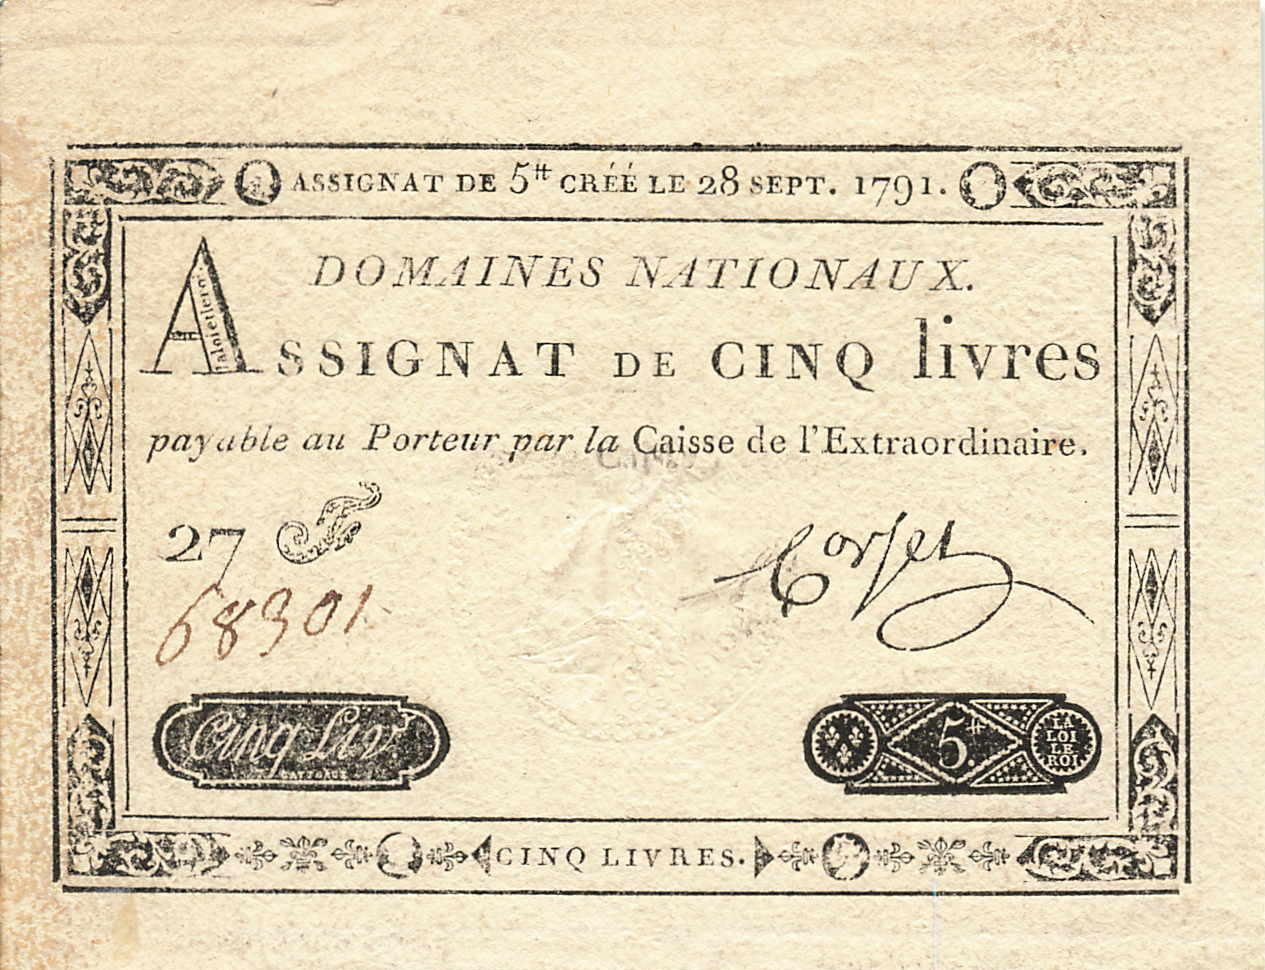 ASSIGNAT DE 5tt CRÉÉ LE 28 SEPT. 1791.
DOMAINES NATIONAUX.
ASSIGNAT DE CINQ livres
payable au Porteur par la Caisse de l'Extraordinaire.
27 F
68301
Corsel
Cinq Liv
5tt
LA
LOI
LE
ROI
CINQ LIVRES.